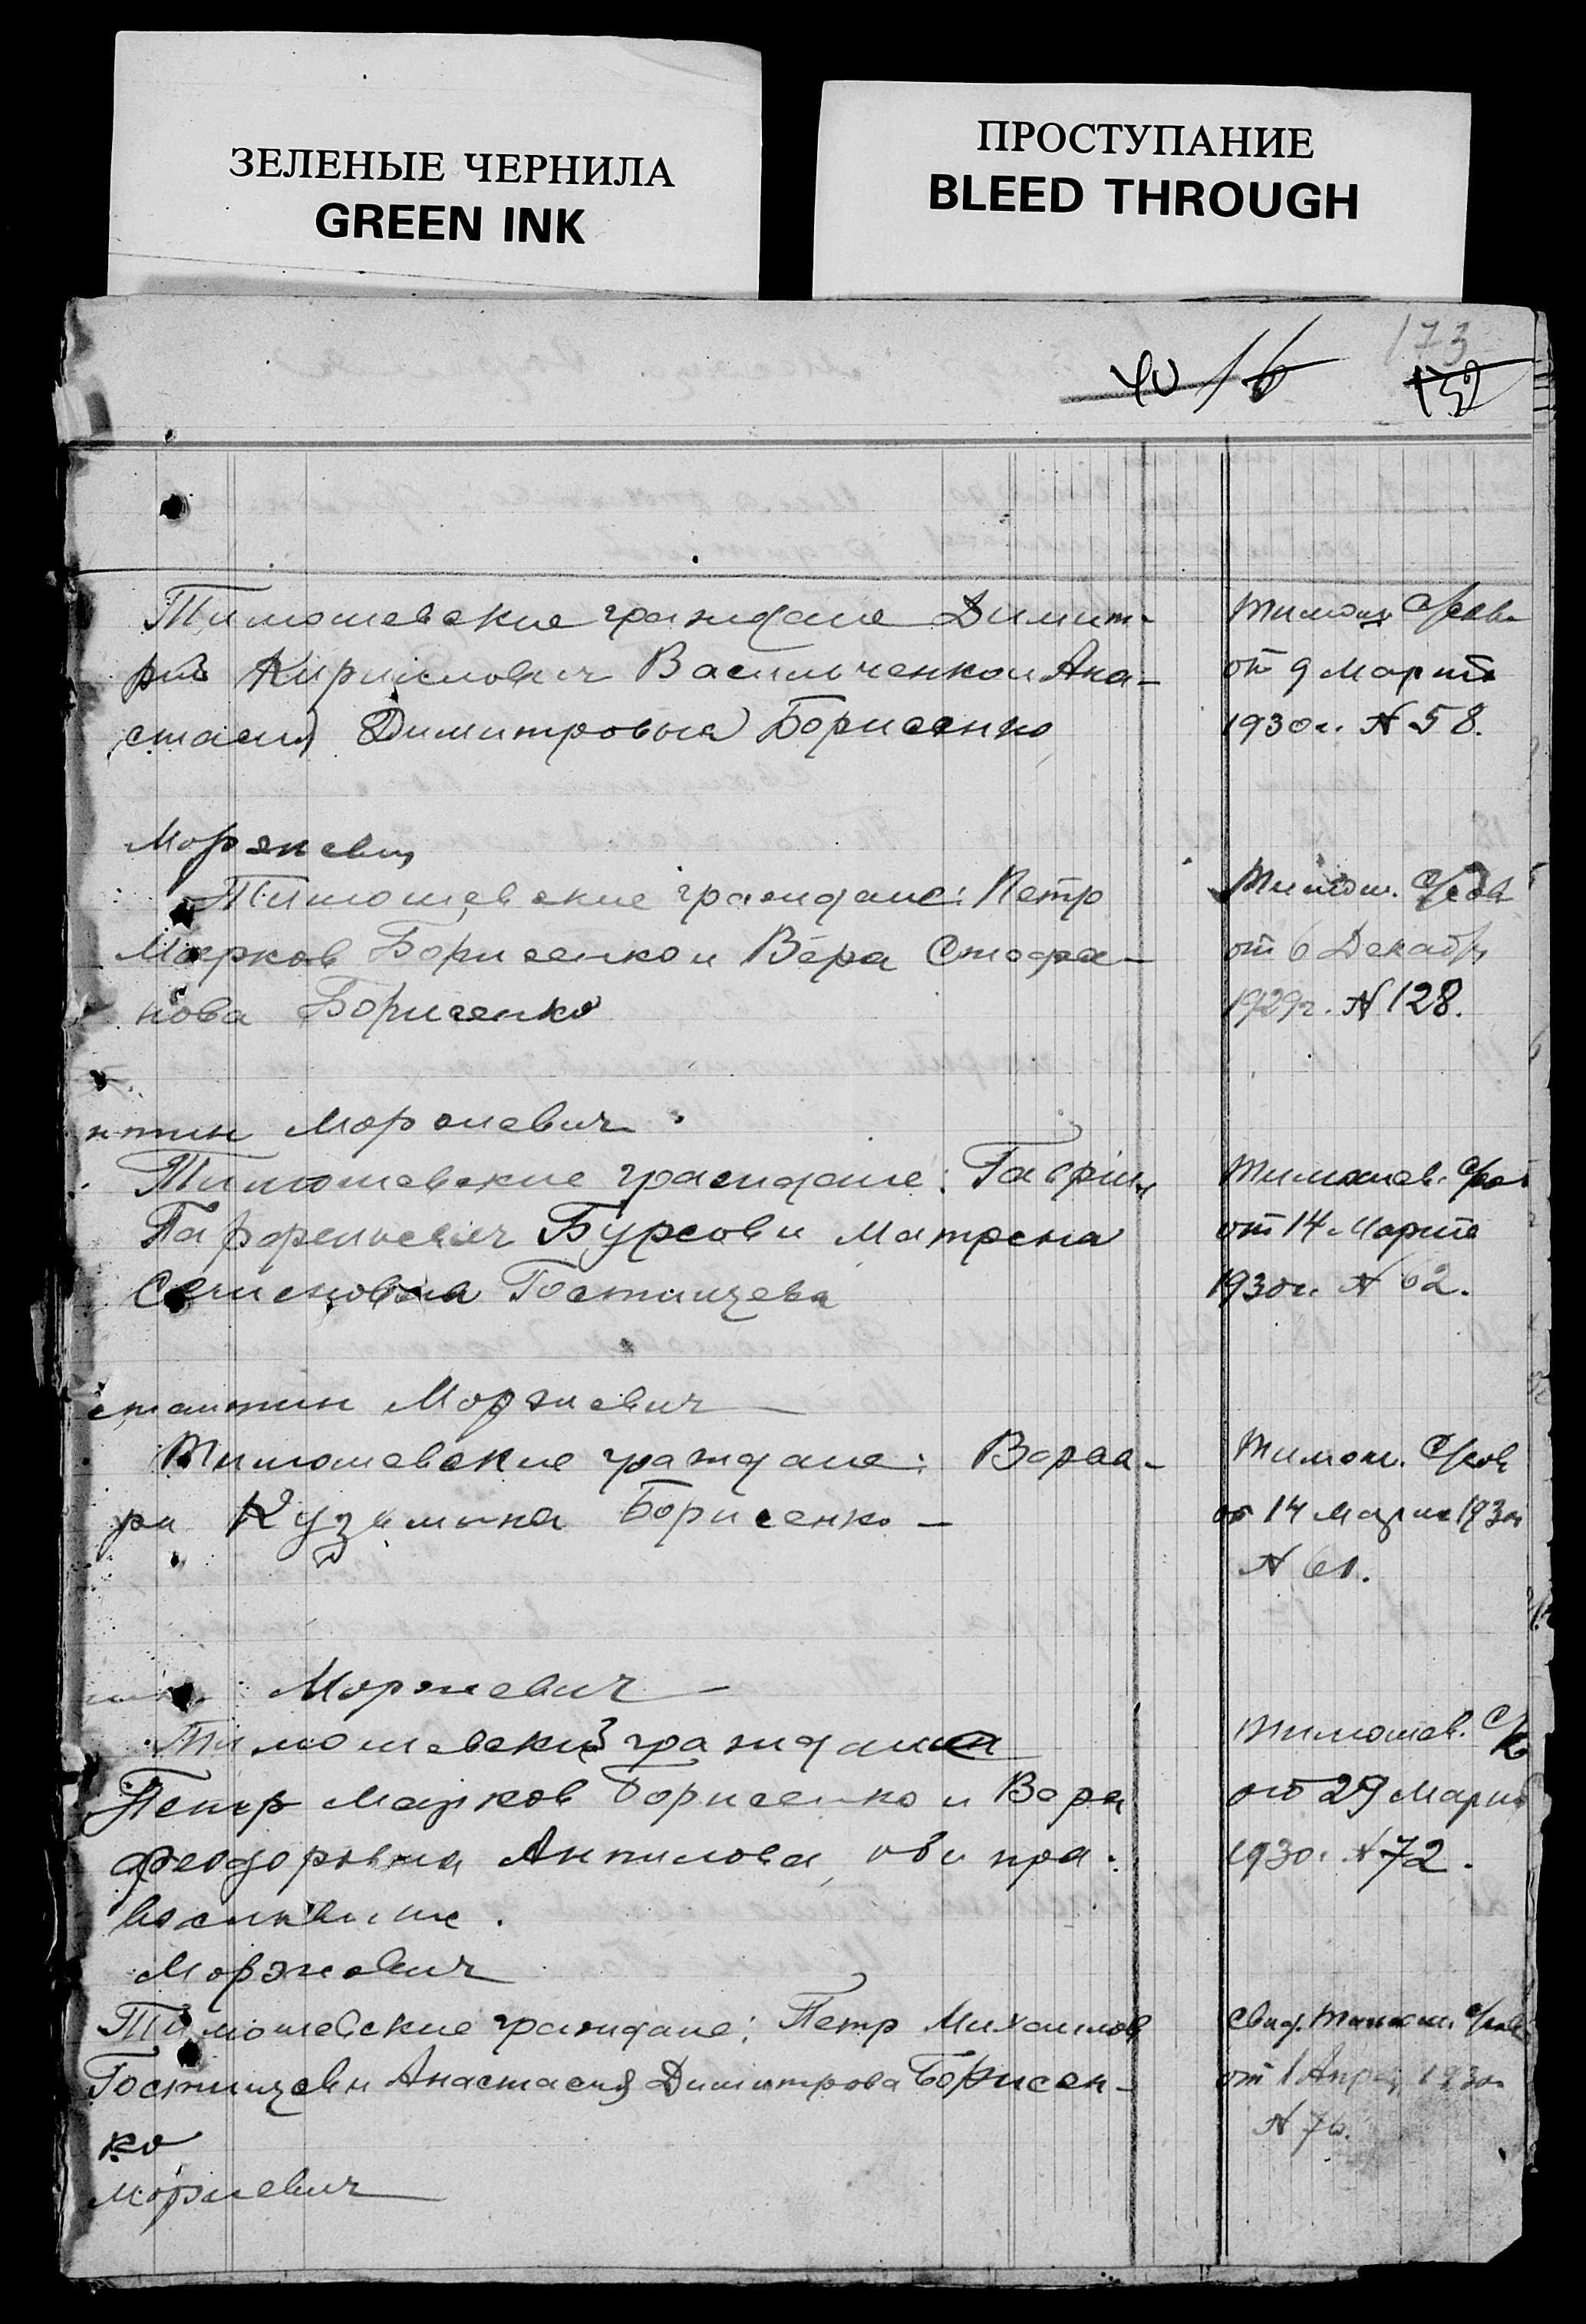 ЗЕЛЕНЫЕ ЧЕРНИЛА
GREEN INK
ПРОСТУПАНИЕ
BLEED THROUGH
173
Тимошевские граждане Димит-
рий Кириллович Васильченко и Ана-
стасия Димитровна Борисенко
от 9 Марта
1930г. N 58.
Моржевич
Тимошевские граждане: Петр
Марков Борисенко и Вера Стефа-
нова Борисенко
Тимош. С/сов
от 6 Декабр
1929г. N 128.
нтин Моржевич
Тимошевские граждане: Гавриил
Парфеньевич Бурсов и Матрена
Семеновна Гостищева
Тимошев. С/сов
от 14 Марта
1930г. N 62.
стантин Моржевич
Тимошевские граждане: Варва-
ра Кузьмина Борисенко -
Тимош. С/сов
от 14 Марта 1930г
N 61.
Моржевич
Тимошевский граждане
Петр Марков Борисенко и Вера
Феодоровна Антипова, оби пра-
вославные.
Тимошев. С/с
от 29 Марта
1930г. N 72.
Моржевич
Тимошевские граждане: Петр Михаилов
Гостищев и Анастасия Димитрова Борисен-
ко
Свид. Тимош. С/сов
от 1 Апреля 1930г.
N 76.
Моржевич